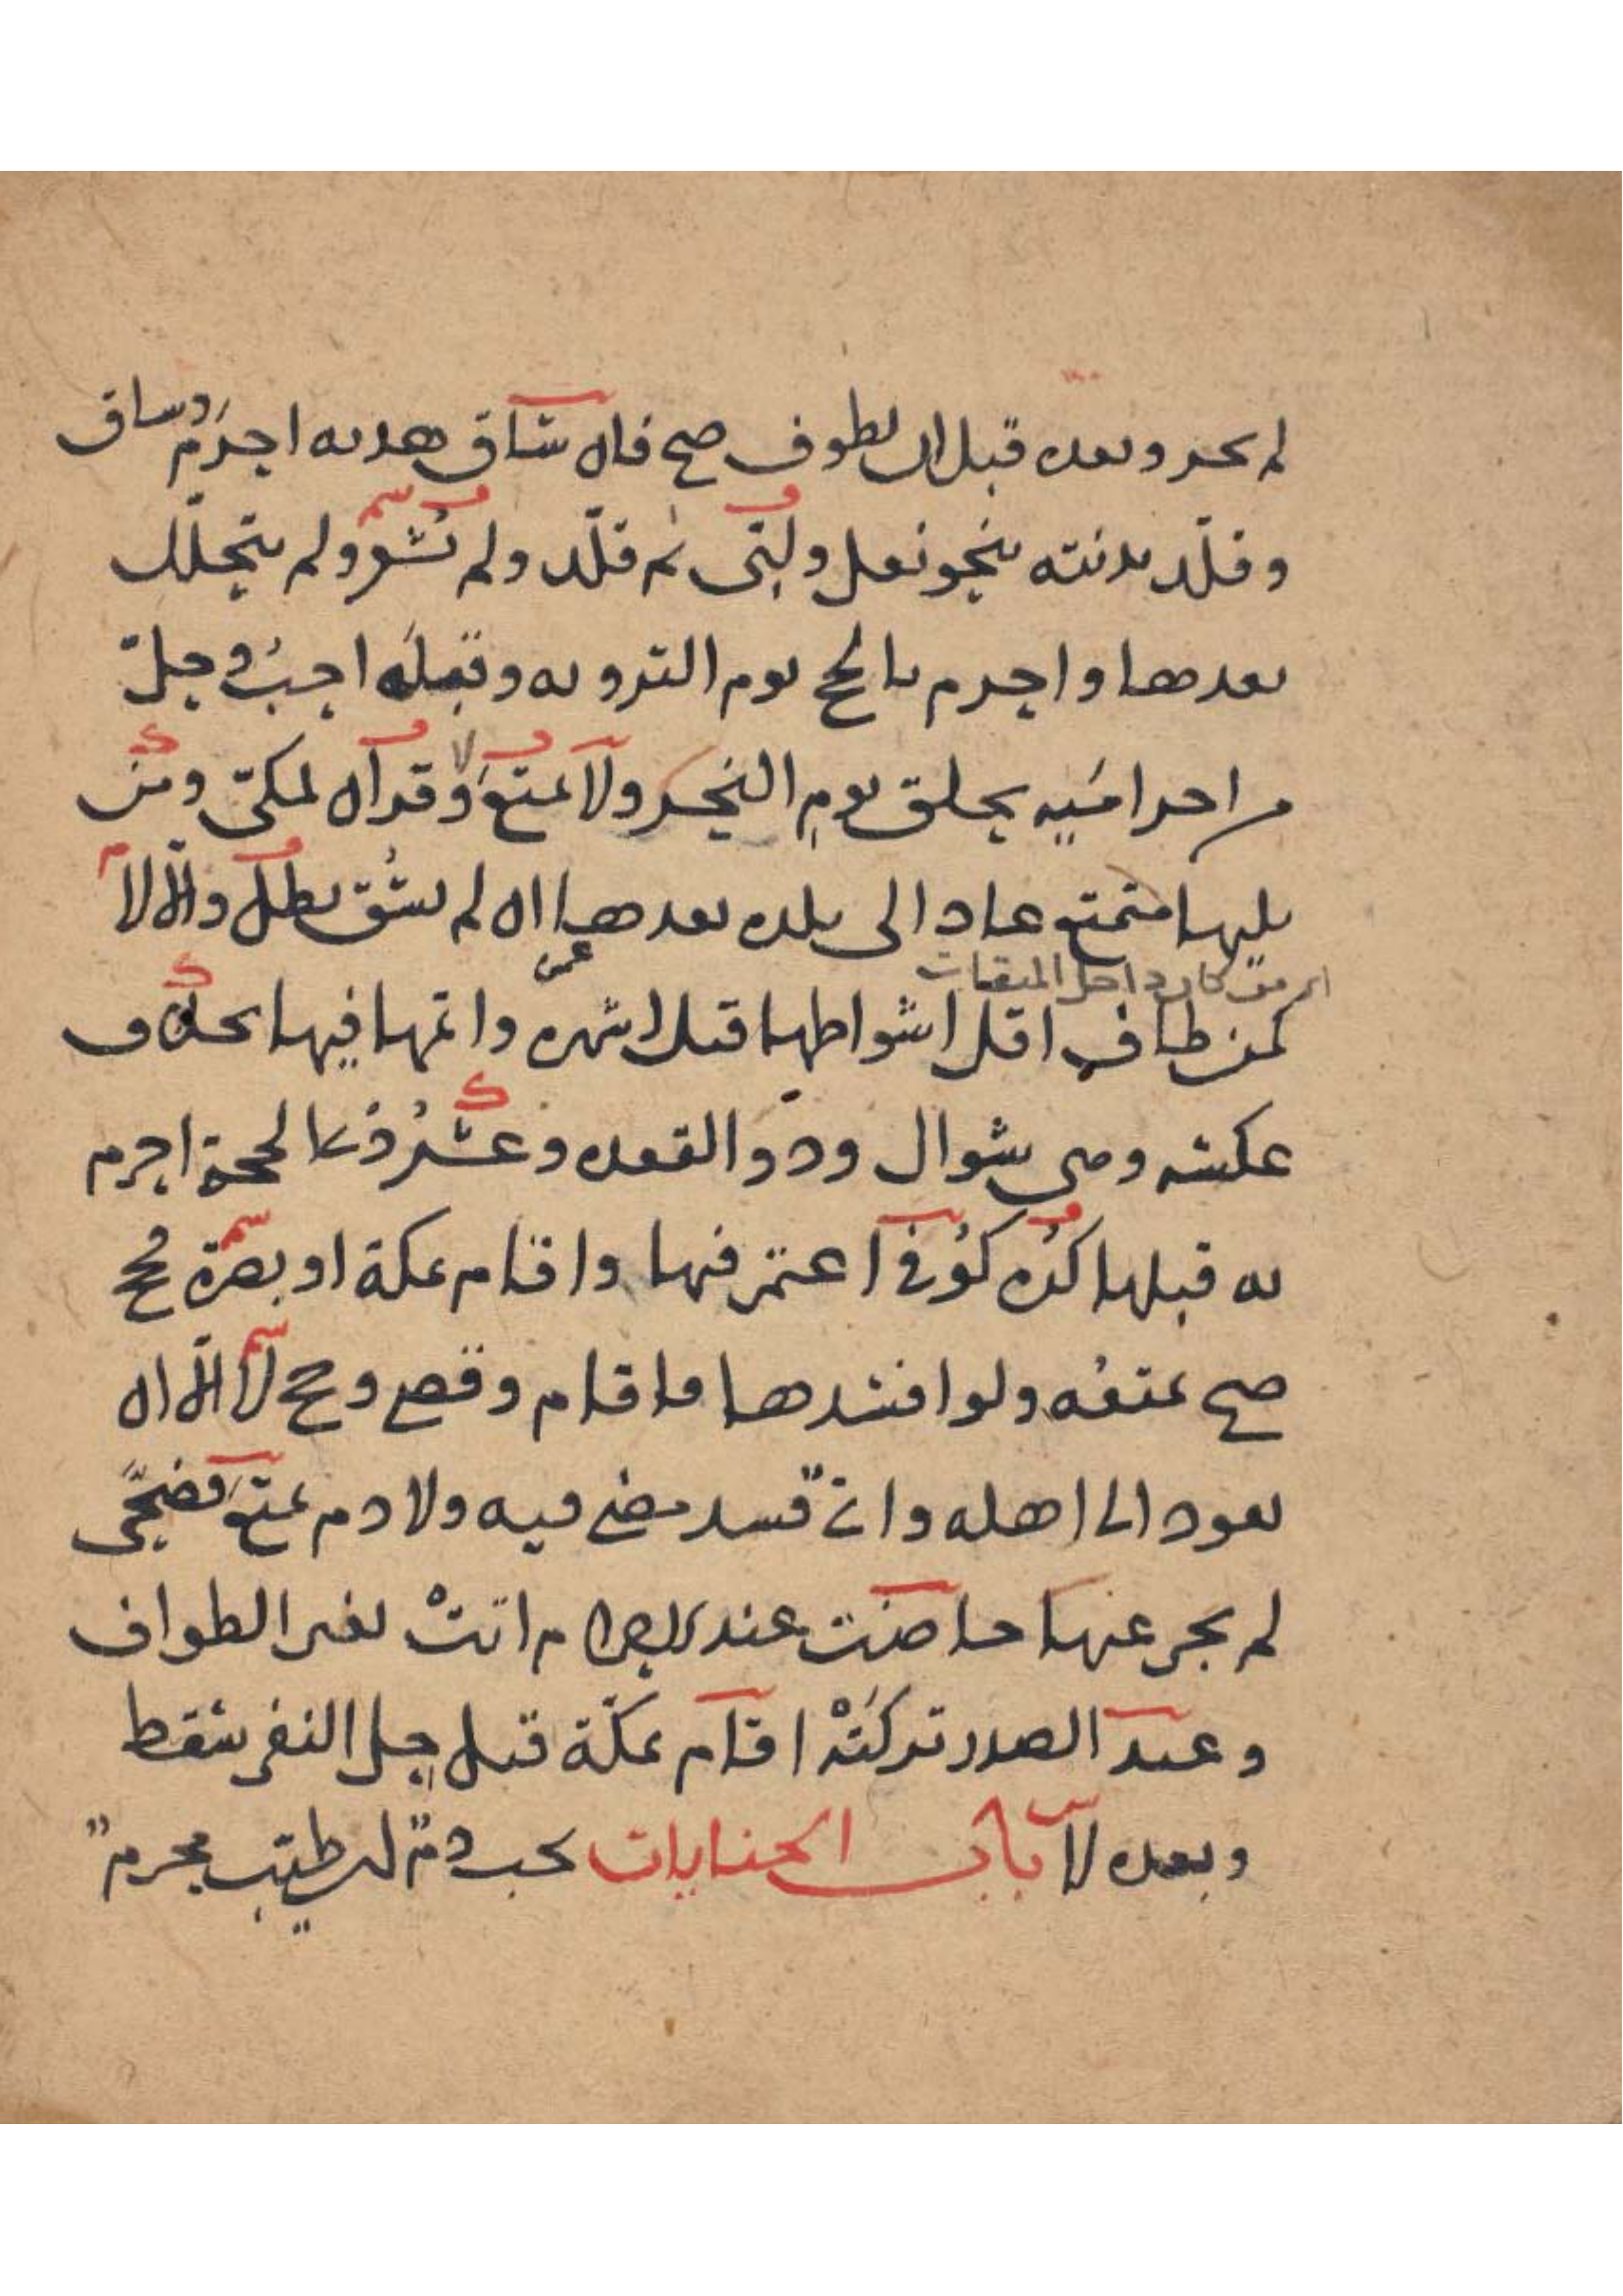 لم يجز وبعده قبل ان يطوف صح فان ساق هديه احرم وساق
وقلد بدنته بنحو نعل ولبى ثم قلد ولم يشعر ولم يتحلل
بعدها واحرم بالحج يوم التروية وقبله احب وحل
من احراميه بحلق يوم النحر ولا تمتع ولا قران لمكي ومن
يليها متمتع عاد الى بلده بعدها ان لم يسق بطل والا لا
اي من كان داخل الميقات
كمن طاف اقل اشواطها قبل اشهره واتمها فيها بخلاف
عكسه وهي شوال وذو القعدة وعشر ذي الحجة احرم
به قبلها كره كوفي اعتمر فيها واقام بمكة او بصرة حج
صح تمتعه ولو افسدها فاقام وقضى وحج لا الا ان
يعود الى اهله واي فسد مضى فيه ولا دم تمتع فضحى
لم يجز عنها حاضت عند الاحرام اتت بغير الطواف
وعند الصدر تركته اقام بمكة قبل حل النفر سقط
وبعده لا باب الجنايات يجب دم ان طيب محرم